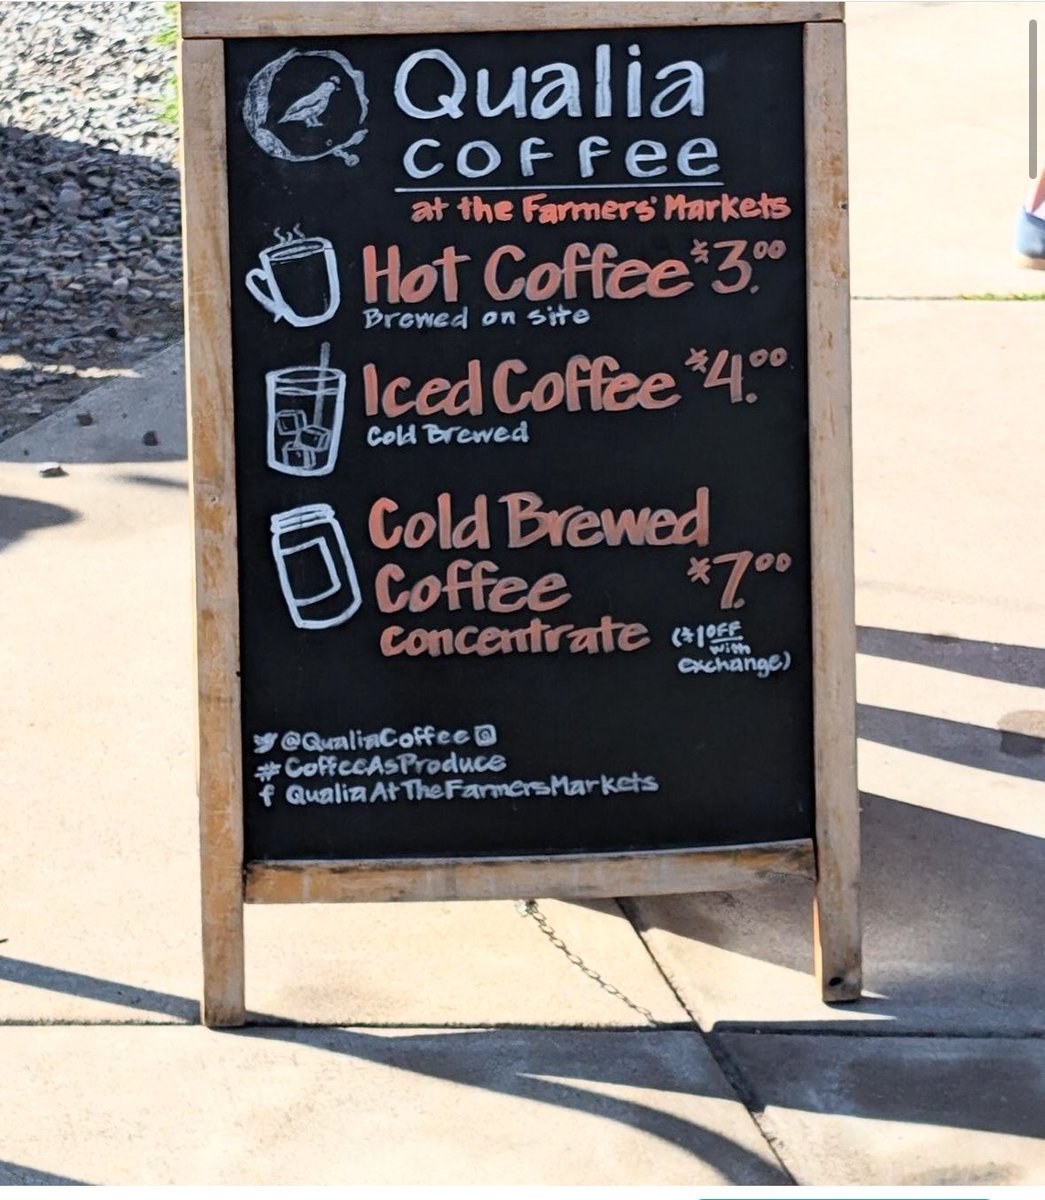 Qualia
COFFEE
at the Farmers' Markets
Hot Coffee $3.00
Brewed on site
Iced Coffee $4.00
Cold Brewed
Cold Brewed
Coffee $7.00
concentrate ($1 OFF
with
exchange)
@QualiaCoffee
#CoffeeAsProduce
f QualiaAtTheFarmersMarkets